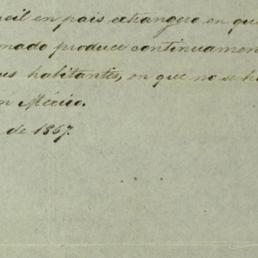 en pais extrangero en que
mado produce continuamen
us habitantes, en que no se h
n México.
de 1867.